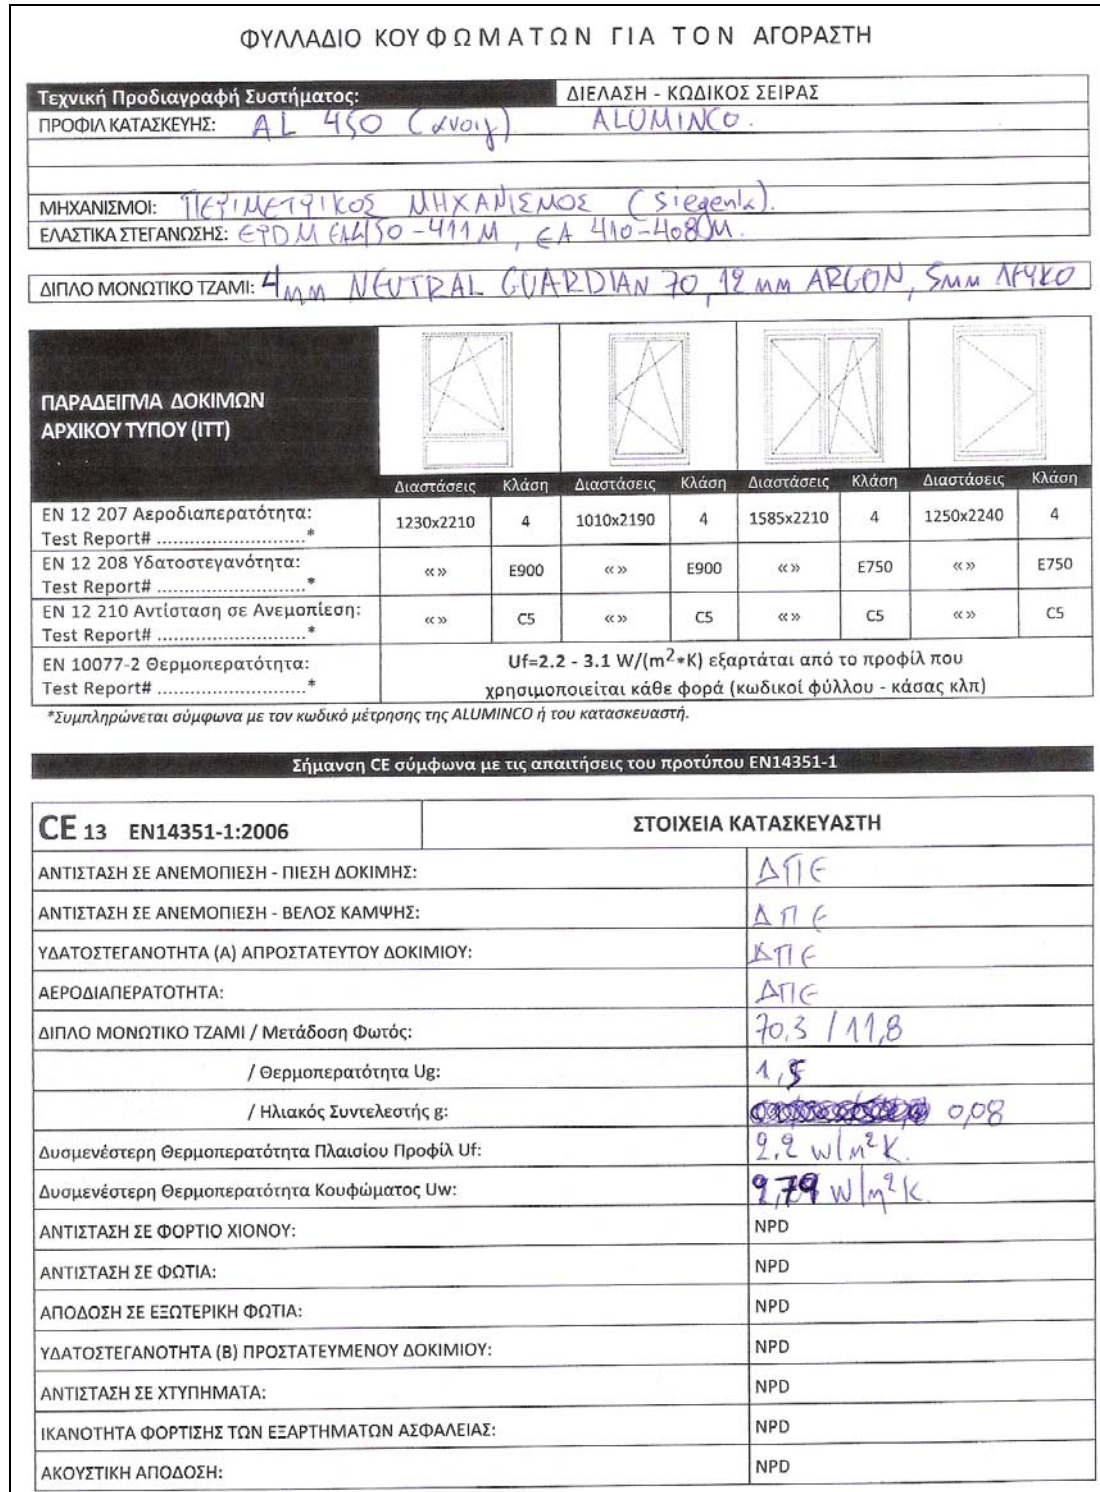 ΦΥΛΛΑΔΙΟ ΚΟΥΦΩΜΑΤΩΝ ΓΙΑ ΤΟΝ ΑΓΟΡΑΣΤΗ
Τεχνική Προδιαγραφή Συστήματος: ΔΙΕΛΑΣΗ - ΚΩΔΙΚΟΣ ΣΕΙΡΑΣ
ΠΡΟΦΙΛ ΚΑΤΑΣΚΕΥΗΣ: AL 450 (ανοιγ) ALUMINCO.
ΜΗΧΑΝΙΣΜΟΙ: ΠΕΡΙΜΕΤΡΙΚΟΣ ΜΗΧΑΝΙΣΜΟΣ (Siegenia).
ΕΛΑΣΤΙΚΑ ΣΤΕΓΑΝΩΣΗΣ: EPDM EA450-411M, EA 410-408M.
ΔΙΠΛΟ ΜΟΝΩΤΙΚΟ ΤΖΑΜΙ: 4mm NEUTRAL GUARDIAN 70, 12 mm ARGON, 5mm ΛΕΥΚΟ
ΠΑΡΑΔΕΙΓΜΑ ΔΟΚΙΜΩΝ
ΑΡΧΙΚΟΥ ΤΥΠΟΥ (ΙΤΤ)
Διαστάσεις Κλάση Διαστάσεις Κλάση Διαστάσεις Κλάση Διαστάσεις Κλάση
EN 12 207 Αεροδιαπερατότητα:
Test Report# ...........................*
1230x2210 4 1010x2190 4 1585x2210 4 1250x2240 4
EN 12 208 Υδατοστεγανότητα:
Test Report# ...........................*
«» E900 «» E900 «» E750 «» E750
EN 12 210 Αντίσταση σε Ανεμοπίεση:
Test Report# ...........................*
«» C5 «» C5 «» C5 «» C5
EN 10077-2 Θερμοπερατότητα:
Test Report# ...........................*
Uf=2.2 - 3.1 W/(m²*K) εξαρτάται από το προφίλ που
χρησιμοποιείται κάθε φορά (κωδικοί φύλλου - κάσας κλπ)
*Συμπληρώνεται σύμφωνα με τον κωδικό μέτρησης της ALUMINCO ή του κατασκευαστή.
Σήμανση CE σύμφωνα με τις απαιτήσεις του προτύπου EN14351-1
CE 13 EN14351-1:2006 ΣΤΟΙΧΕΙΑ ΚΑΤΑΣΚΕΥΑΣΤΗ
ΑΝΤΙΣΤΑΣΗ ΣΕ ΑΝΕΜΟΠΙΕΣΗ - ΠΙΕΣΗ ΔΟΚΙΜΗΣ: ΔΠΕ
ΑΝΤΙΣΤΑΣΗ ΣΕ ΑΝΕΜΟΠΙΕΣΗ - ΒΕΛΟΣ ΚΑΜΨΗΣ: ΔΠΕ
ΥΔΑΤΟΣΤΕΓΑΝΟΤΗΤΑ (Α) ΑΠΡΟΣΤΑΤΕΥΤΟΥ ΔΟΚΙΜΙΟΥ: ΔΠΕ
ΑΕΡΟΔΙΑΠΕΡΑΤΟΤΗΤΑ: ΔΠΕ
ΔΙΠΛΟ ΜΟΝΩΤΙΚΟ ΤΖΑΜΙ / Μετάδοση Φωτός: 70,3 / 11,8
/ Θερμοπερατότητα Ug: 1,5
/ Ηλιακός Συντελεστής g: 0,08
Δυσμενέστερη Θερμοπερατότητα Πλαισίου Προφίλ Uf: 2,2 W/m²K.
Δυσμενέστερη Θερμοπερατότητα Κουφώματος Uw: 2,79 W/m²K.
ΑΝΤΙΣΤΑΣΗ ΣΕ ΦΟΡΤΙΟ ΧΙΟΝΟΥ: NPD
ΑΝΤΙΣΤΑΣΗ ΣΕ ΦΩΤΙΑ: NPD
ΑΠΟΔΟΣΗ ΣΕ ΕΞΩΤΕΡΙΚΗ ΦΩΤΙΑ: NPD
ΥΔΑΤΟΣΤΕΓΑΝΟΤΗΤΑ (Β) ΠΡΟΣΤΑΤΕΥΜΕΝΟΥ ΔΟΚΙΜΙΟΥ: NPD
ΑΝΤΙΣΤΑΣΗ ΣΕ ΧΤΥΠΗΜΑΤΑ: NPD
ΙΚΑΝΟΤΗΤΑ ΦΟΡΤΙΣΗΣ ΤΩΝ ΕΞΑΡΤΗΜΑΤΩΝ ΑΣΦΑΛΕΙΑΣ: NPD
ΑΚΟΥΣΤΙΚΗ ΑΠΟΔΟΣΗ: NPD